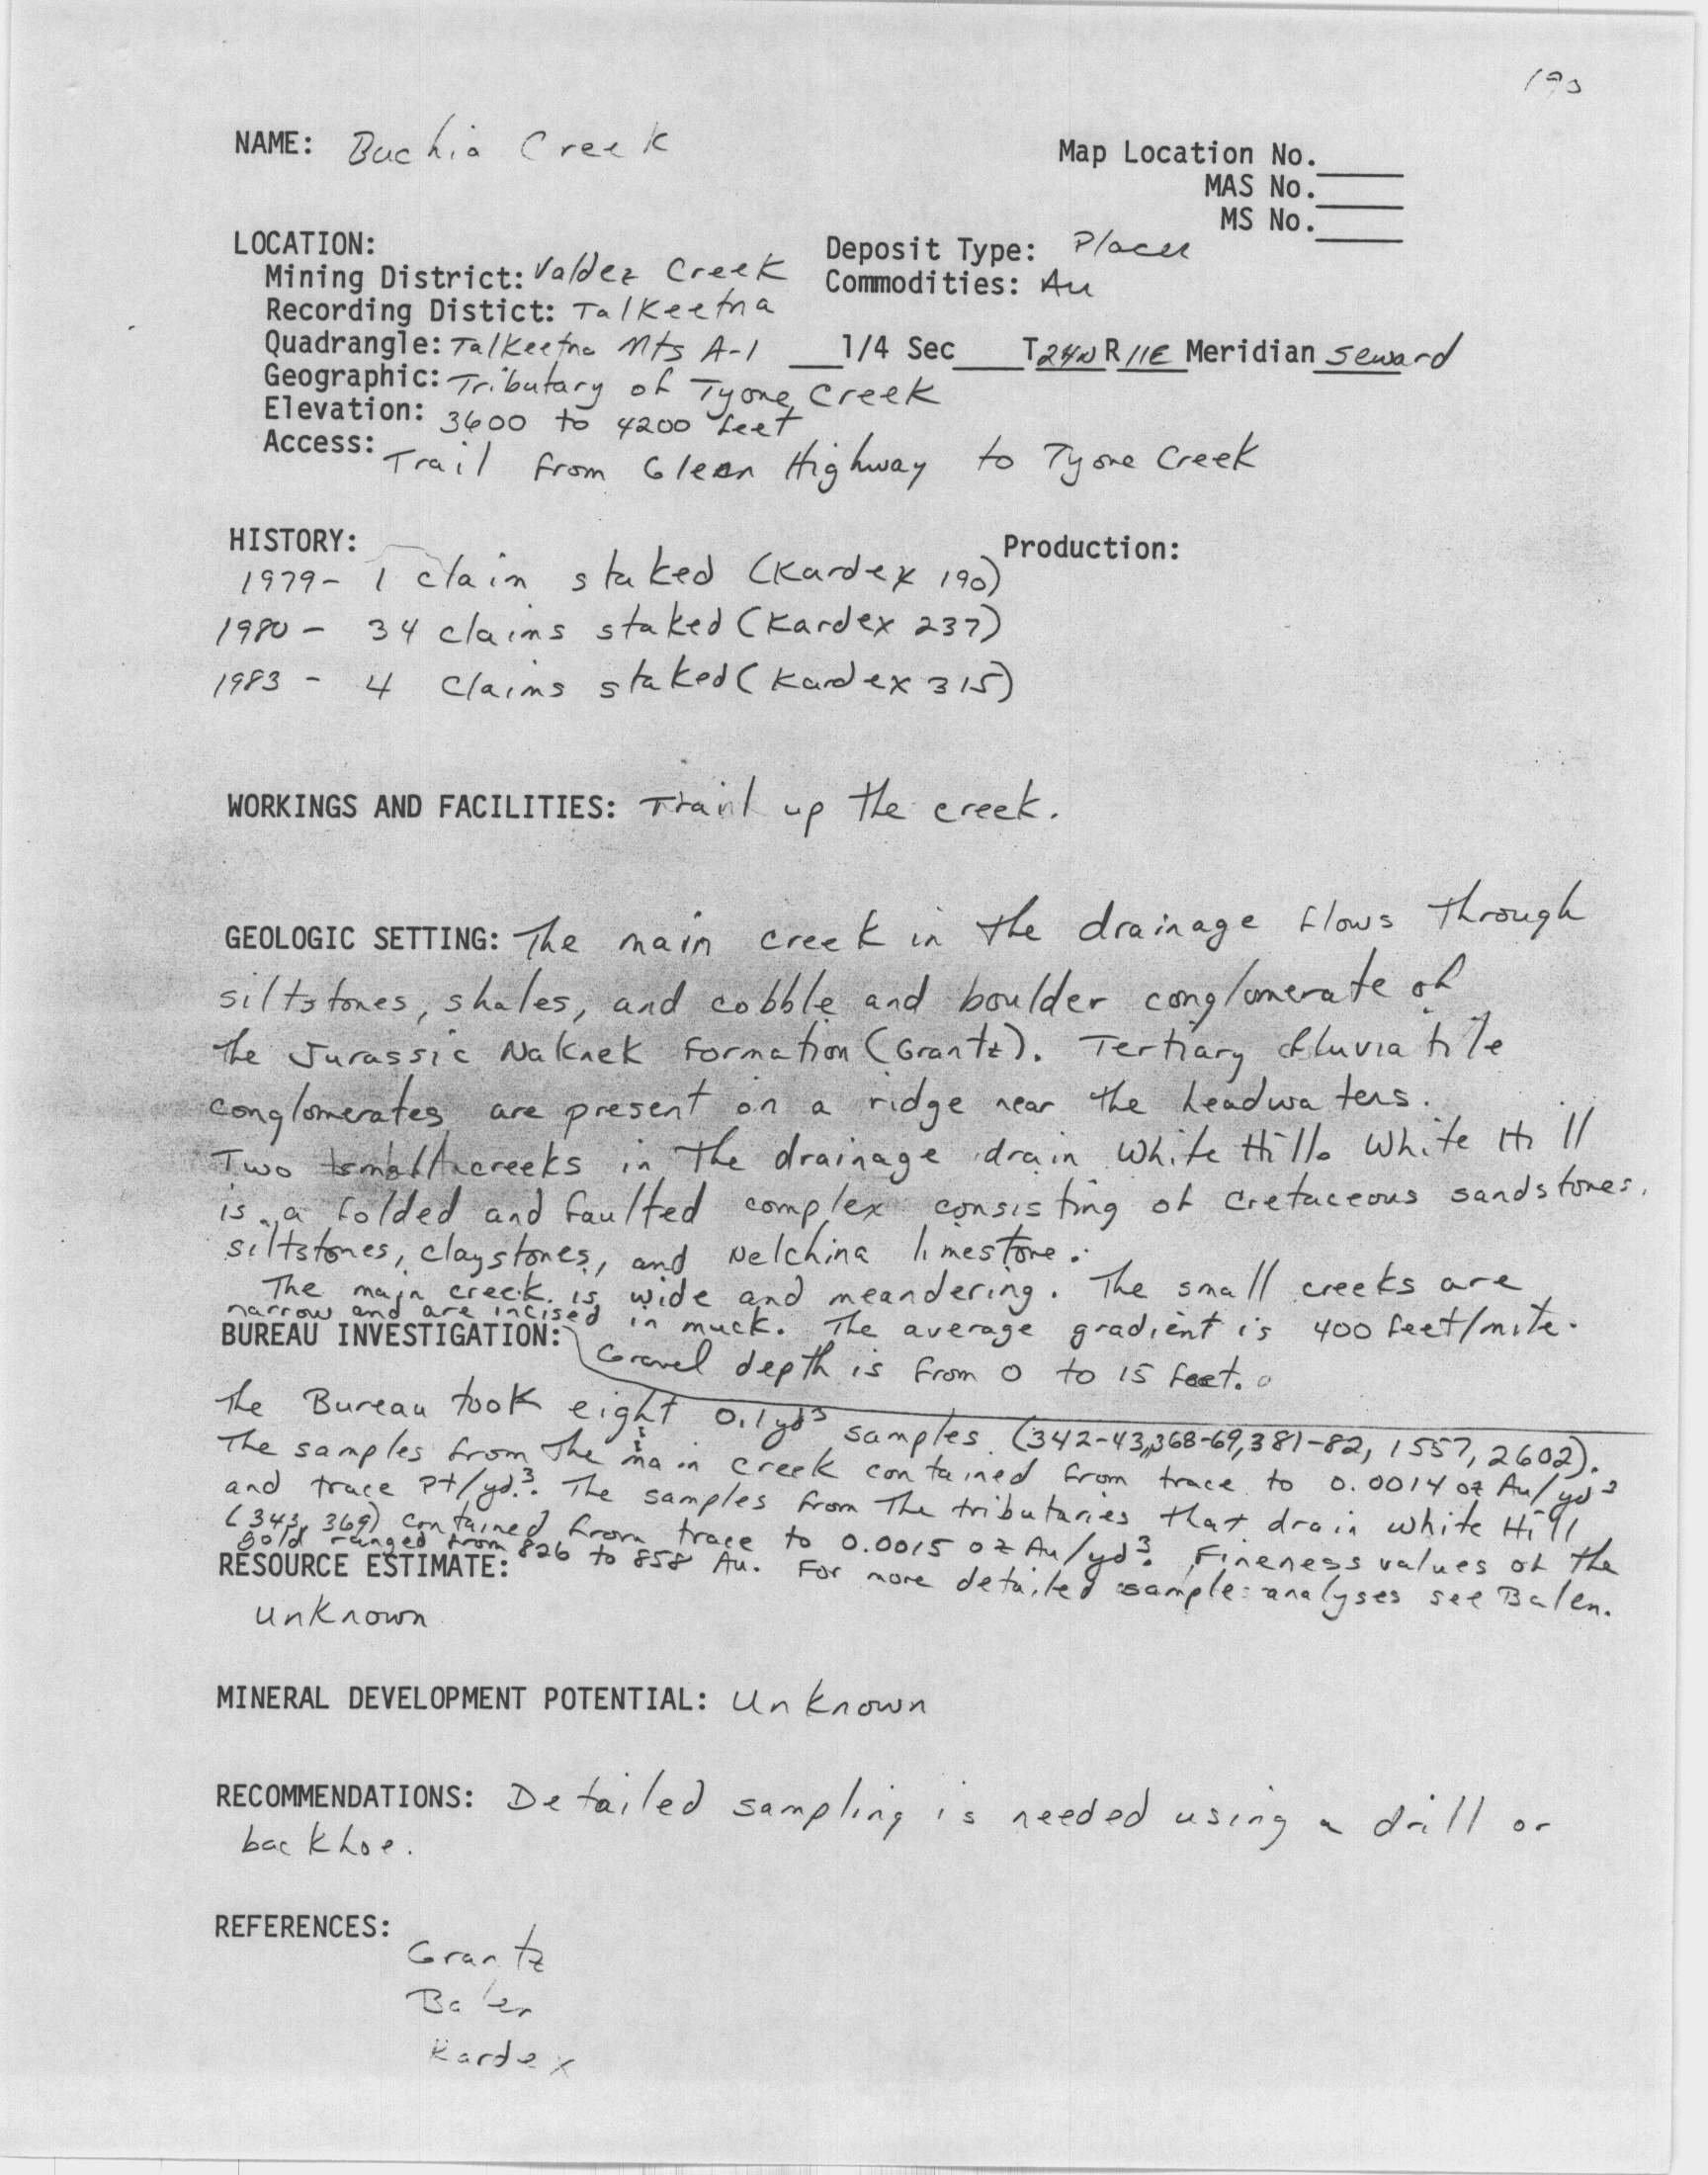 190
NAME: Buchia Creek
Map Location No.
MAS No.
MS No.
LOCATION:
Deposit Type: Placer
Mining District: Valdez Creek Commodities: Au
Recording Distict: Talkeetna
Quadrangle: Talkeetna Mts A-1 ___1/4 Sec____ T24N R11E Meridian Seward
Geographic: Tributary of Tyone Creek
Elevation: 3600 to 4200 feet
Access: Trail from Glenn Highway to Tyone Creek
HISTORY:
Production:
1979- 1 claim staked (Kardex 190)
1980 - 34 claims staked (Kardex 237)
1983 - 4 claims staked (Kardex 315)
WORKINGS AND FACILITIES: Trail up the creek.
GEOLOGIC SETTING: The main creek in the drainage flows through
siltstones, shales, and cobble and boulder conglomerate of
the Jurassic Naknek Formation (Grantz). Tertiary fluviatile
conglomerates are present on a ridge near the headwaters.
Two small creeks in the drainage drain White Hill. White Hill
is a folded and faulted complex consisting of Cretaceous sandstones,
siltstones, claystones, and Nelchina limestone.
The main creek is wide and meandering. The small creeks are
narrow and are incised in muck. The average gradient is 400 feet/mile.
BUREAU INVESTIGATION:
Gravel depth is from 0 to 15 feet.
The Bureau took eight 0.1 yd³ samples (342-43, 368-69, 381-82, 1557, 2602).
The samples from the main creek contained from trace to 0.0014 oz Au/yd³
and trace Pt/yd³. The samples from the tributaries that drain White Hill
(343, 369) contained from trace to 0.0015 oz Au/yd³. Fineness values of the
gold ranged from 826 to 858 Au. For more detailed sample analyses see Balen.
RESOURCE ESTIMATE:
Unknown
MINERAL DEVELOPMENT POTENTIAL: Unknown
RECOMMENDATIONS: Detailed sampling is needed using a drill or
backhoe.
REFERENCES:
Grantz
Balen
Kardex